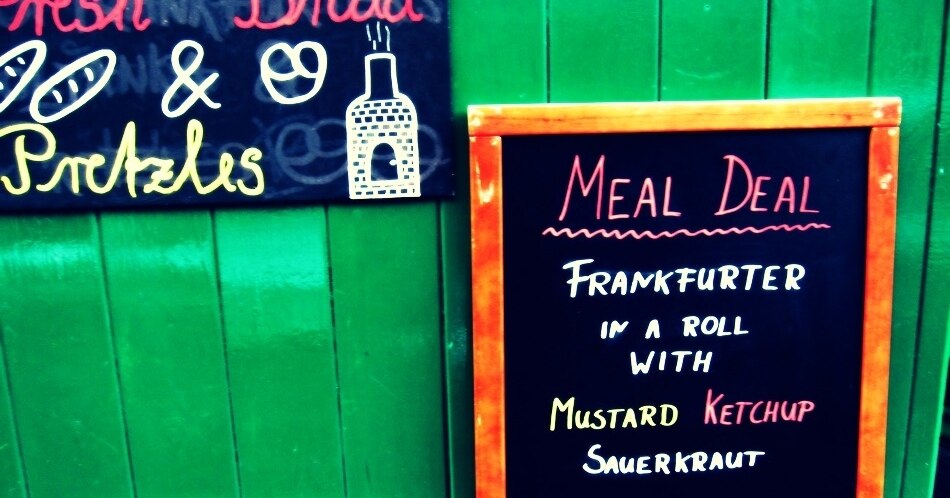 Fresh Bread
&
Pretzles
MEAL DEAL
FRANKFURTER
IN A ROLL
WITH
MUSTARD KETCHUP
SAUERKRAUT